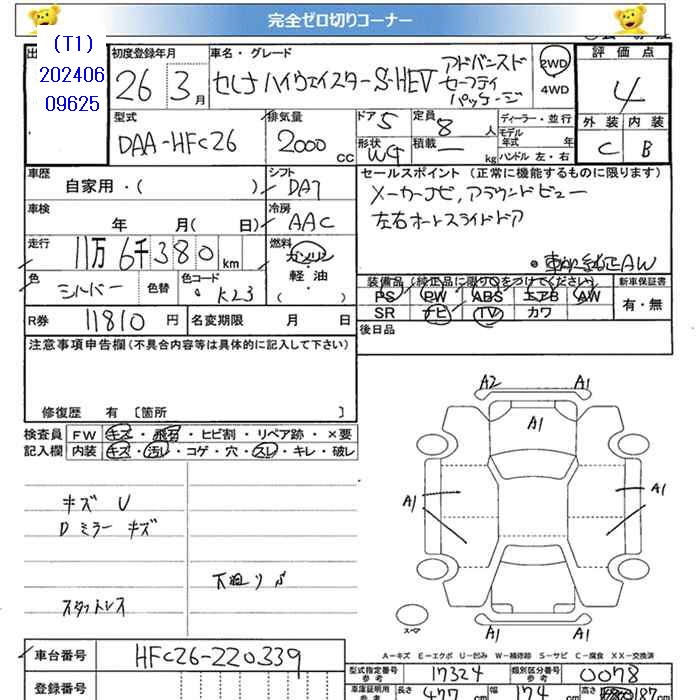 完全ゼロ切りコーナー
(T1)
202406
09625
初度登録年月
26年 3月
車名・グレード
セレナ ハイウェイスターS-HEV アドバンスド
セーフティ
パッケージ
2WD
4WD
評価点
4
外装 内装
C B
型式
DAA-HFC26
排気量
2000 CC
ドア 5
形状 WG
定員 8 人
積載 ー kg
ディーラー・並行
モデル年式 年
ハンドル 左・右
車歴
自家用・( )
シフト
DAT
車検
年 月( 日)
冷房
AAC
走行
11万 6千 380 km
燃料
ガソリン
軽・油
( ・ )
色
シルバー
色替
色コード
K23
R券 11810 円
名変期限 月 日
セールスポイント (正常に機能するものに限ります)
メーカーナビ, アラウンドビュー
左右オートスライドドア
● 車検純正AW
装備品 (純正品に限り○をつけてください)
PS PW ABS エアB AW
SR ナビ TV カワ
新車保証書
有・無
後日品
注意事項申告欄(不具合内容等は具体的に記入して下さい)
修復歴 有 〔箇所 〕
検査員 FW キズ・飛石・ヒビ割・リペア跡・×要
記入欄 内装 キズ・汚レ・コゲ・穴・スレ・キレ・破レ
キズ U
Dミラー キズ
下廻りS
スタットレス
A2 A1
A1
A1 A1
A1 A1
スペア
A-キズ E-エクボ U-凹み W-補修跡 S-サビ C-腐食 XX-交換済
車台番号 HFC26-220339
登録番号
型式指定番号 参考 17324
類別区分番号 参考 0078
車庫証明用 参考 長さ 477 cm 幅 174 cm 高さ 187 cm